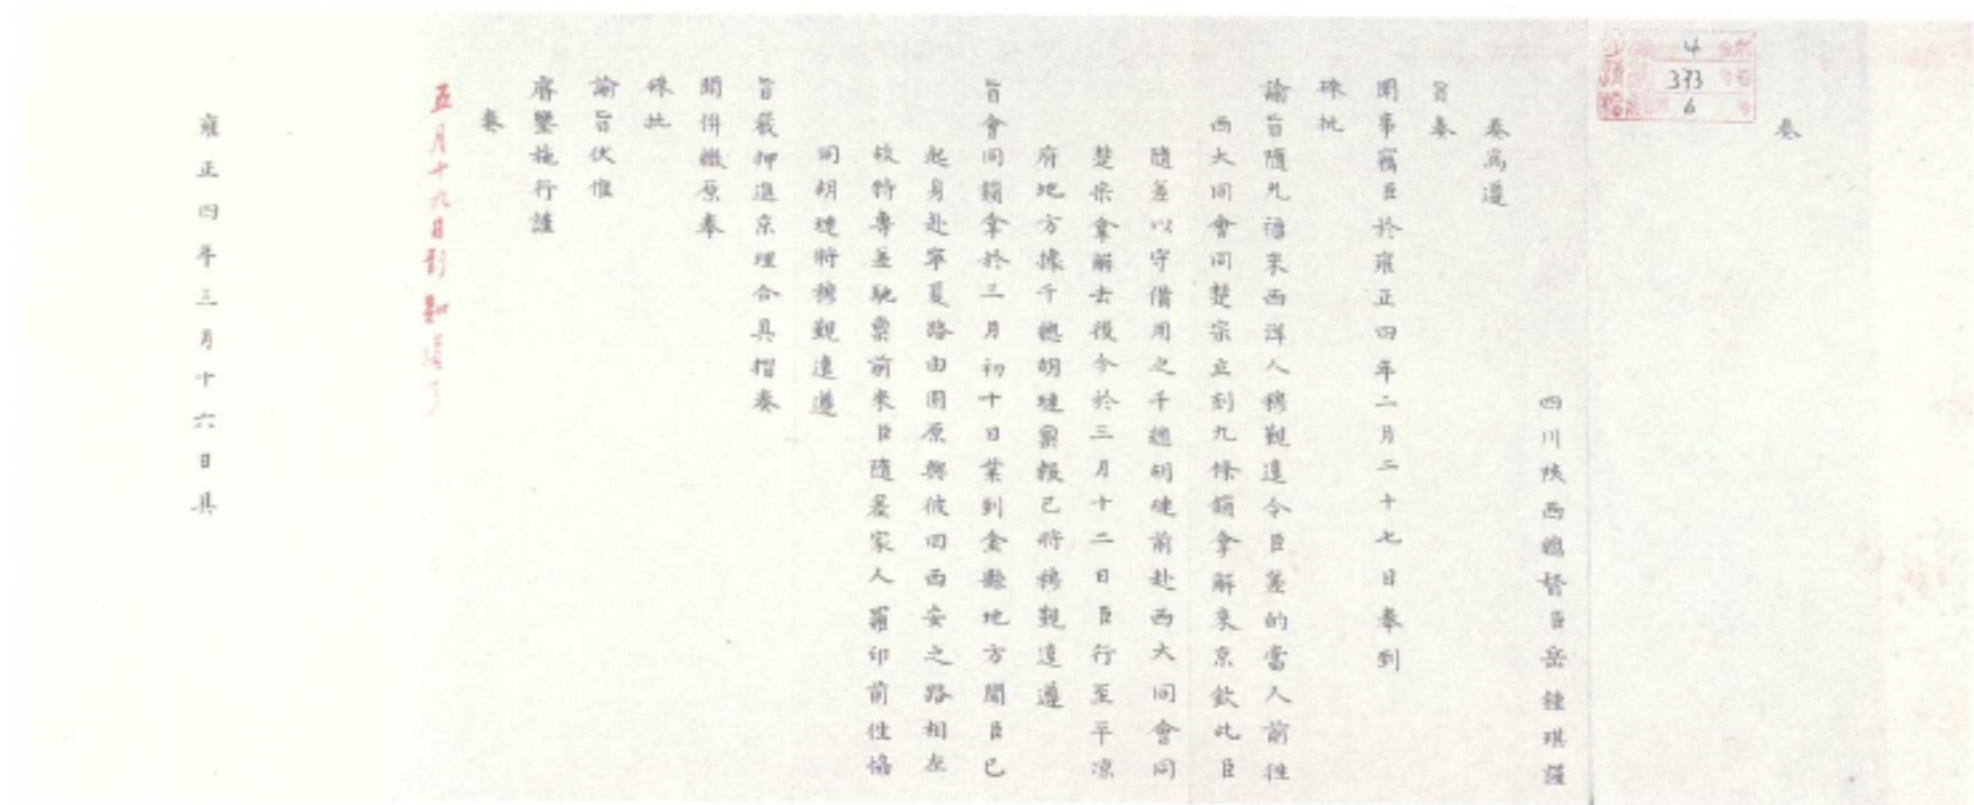 奏
4
373
6
四川陝西總督臣岳鍾琪謹
奏為遵
旨奏
聞事竊臣於雍正四年二月二十七日奉到
硃批
諭旨隨允禟來西洋人穆覲遠令臣差的當人前往
西大同會同楚宗立刻九條鎖拿解來京欽此臣
隨差以守備用之千總胡璉前赴西大同會同
楚宗拿解去後今於三月十二日臣行至平凉
府地方據千總胡璉稟報已將穆覲遠遵
旨會同鎖拿於三月初十日業到金縣地方聞臣已
起身赴寧夏路由固原與彼回西安之路相左
故特專差馳稟前來臣隨差家人羅印前往協
同胡璉將穆覲遠遵
旨嚴押進京理合具摺奏
聞併繳原奉
硃批
諭旨伏惟
睿鑒施行謹
奏
五月十九日到 知道了
雍正四年三月十六日具